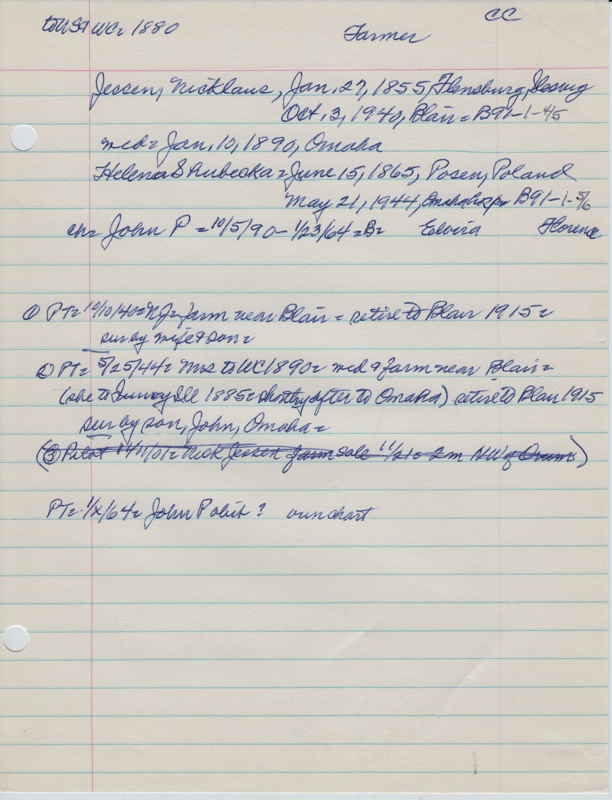 to USA WC= 1880 Farmer CC
Jessen, Nicklaus, Jan. 27, 1855, Flensburg,
Oct. 3, 1940, Blair = B91-1-45
med= Jan. 10, 1890, Omaha
Helena = June 15, 1865, Posen, Poland
May 21, 1944, B91-1-
ch= John P = 10/5/90 - 1/23/64 = B= Elvira Florence
① PT= 10/10/40= farm near Blair = retire to Blair 1915=
sur by wife & son=
② PT= 5/25/44= Mrs to WC 1890= med & farm near Blair=
(she to Ill 1885= shortly after to Omaha) retire to Blair 1915
sur by son, John, Omaha=
(③ Pilot Nick Jessen farm sale 11/21= 2m NW of Orum)
PT= 1/x/64= John P obit? own chart